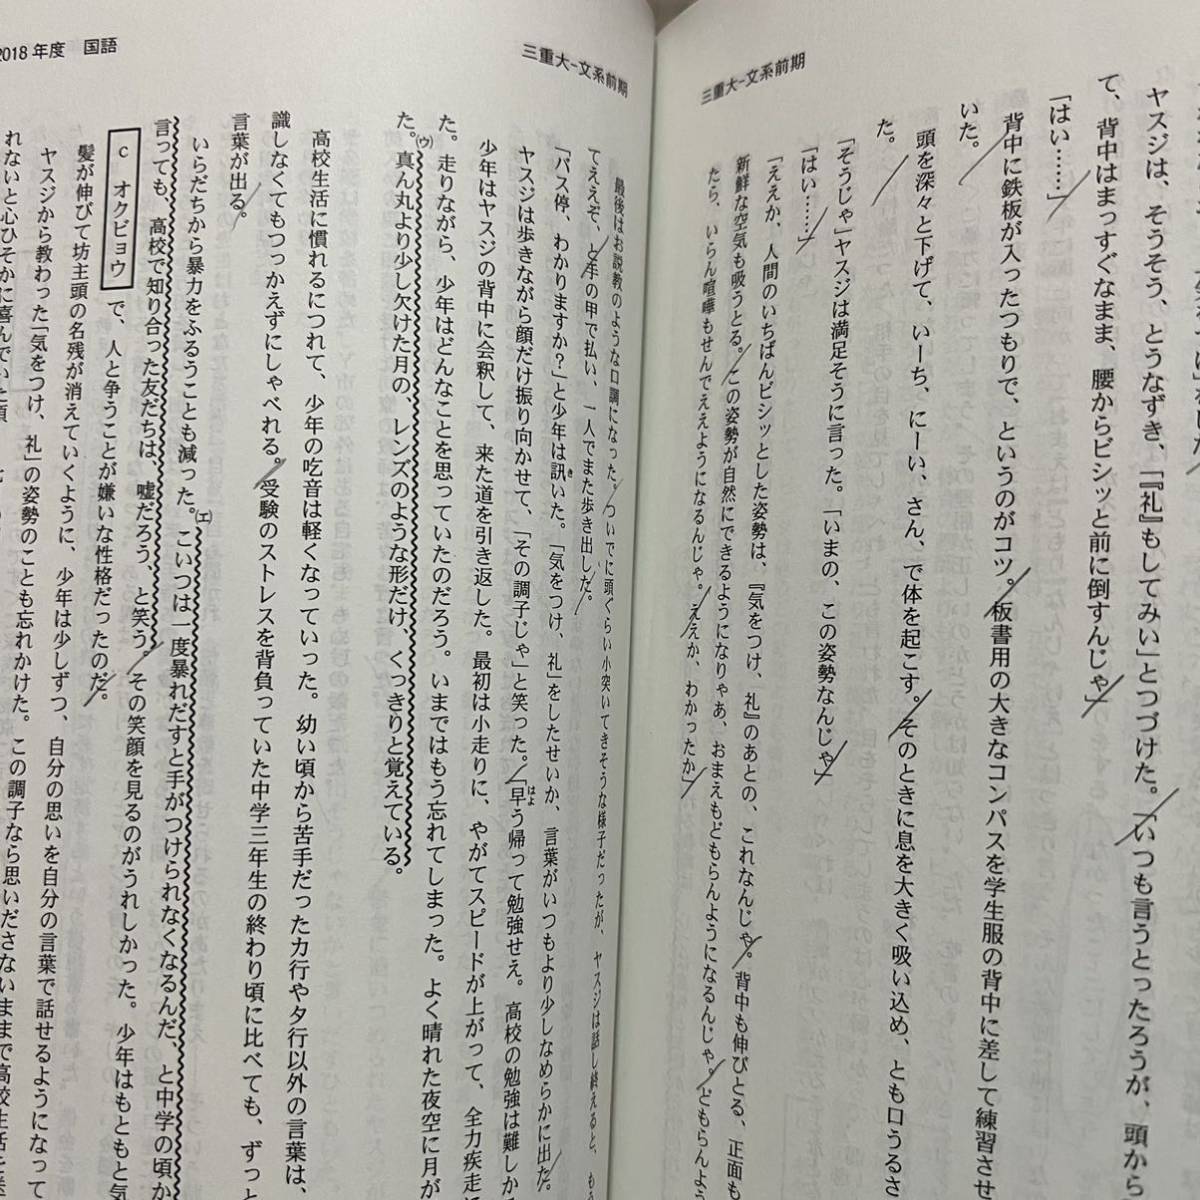 三重大-文系前期
ヤスジは、そうそう、とうなずき、「『礼』もしてみい」とつづけた。「いつも言うとったろうが、頭から
て、背中はまっすぐなまま、腰からビシッと前に倒すんじゃ」
「はい……」
背中に鉄板が入ったつもりで、というのがコツ。板書用の大きなコンパスを学生服の背中に差して練習させ
いた。
頭を深々と下げて、いーち、にーい、さん、で体を起こす。そのときに息を大きく吸い込め、とも口うるさ
た。
「そうじゃ」ヤスジは満足そうに言った。「いまの、この姿勢なんじゃ」
「はい……」
「ええか、人間のいちばんビシッとした姿勢は、『気をつけ、礼』のあとの、これなんじゃ。背中も伸びとる、正面も
新鮮な空気も吸うとる。この姿勢が自然にできるようになりゃあ、おまえもどもらんようになるんじゃ。どもらんよう
たら、いらん喧嘩もせんでええようになるんじゃ。ええか、わかったか」
2018年度　国語
三重大-文系前期
最後はお説教のような口調になった。ついでに頭ぐらい小突いてきそうな様子だったが、ヤスジは話し終えると、もう
てええぞ、と手の甲で払い、一人でまた歩き出した。
「バス停、わかりますか？」と少年は訊いた。「気をつけ、礼」をしたせいか、言葉がいつもより少しなめらかに出た。
ヤスジは歩きながら顔だけ振り向かせて、「その調子じゃ」と笑った。「早う帰って勉強せえ。高校の勉強は難しか
少年はヤスジの背中に会釈して、来た道を引き返した。最初は小走りに、やがてスピードが上がって、全力疾走
た。走りながら、少年はどんなことを思っていたのだろう。いまではもう忘れてしまった。よく晴れた夜空に月が
た。(ウ)真ん丸より少し欠けた月の、レンズのような形だけ、くっきりと覚えている。
高校生活に慣れるにつれて、少年の吃音は軽くなっていった。幼い頃から苦手だったカ行やタ行以外の言葉は、
識しなくてもつっかえずにしゃべれる。受験のストレスを背負っていた中学三年生の終わり頃に比べても、ずっと
言葉が出る。
いらだちから暴力をふるうことも減った。(エ)こいつは一度暴れだすと手がつけられなくなるんだ、と中学の頃か
言っても、高校で知り合った友だちは、嘘だろう、と笑う。その笑顔を見るのがうれしかった。少年はもともと気
c　オクビョウ　で、人と争うことが嫌いな性格だったのだ。
髪が伸びて坊主頭の名残が消えていくように、少年は少しずつ、自分の思いを自分の言葉で話せるようになって
ヤスジから教わった「気をつけ、礼」の姿勢のことも忘れかけた。この調子なら思いださないままで高校生活を
れないと心ひそかに喜んでいた頃